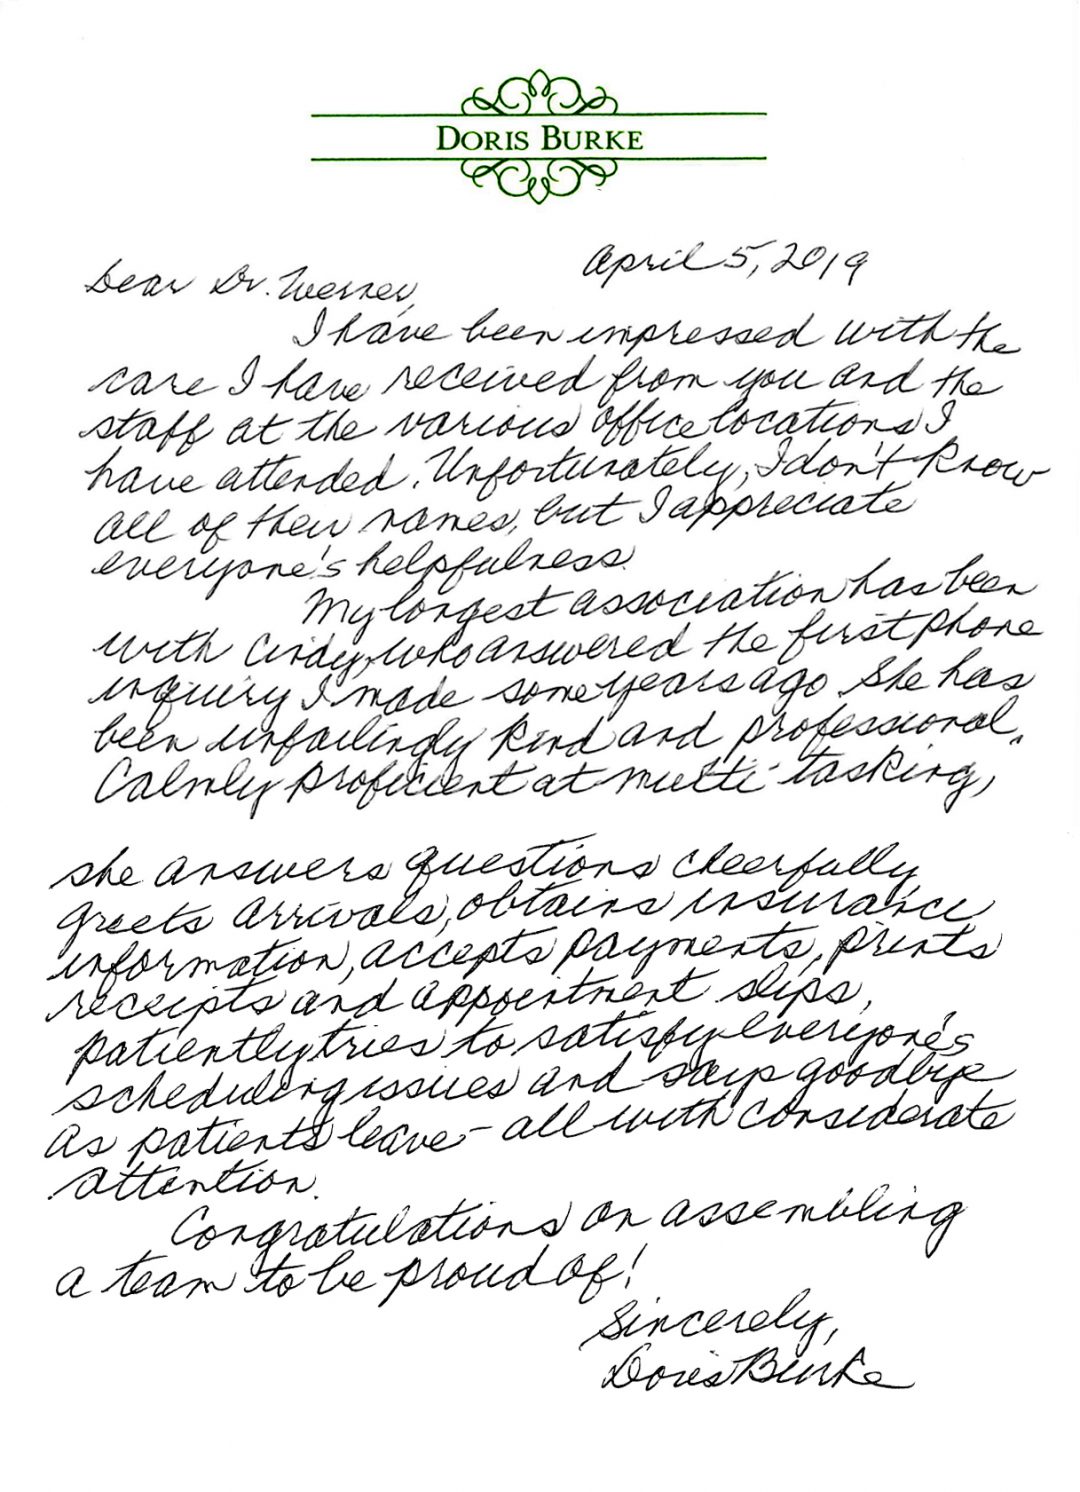 DORIS BURKE
April 5, 2019
Dear Dr. Werner,
I have been impressed with the
care I have received from you and the
staff at the various office locations I
have attended. Unfortunately, I don't know
all of their names, but I appreciate
everyone's helpfulness.
My longest association has been
with Cindy, who answered the first phone
inquiry I made some years ago. She has
been unfailingly kind and professional.
Calmly proficient at multi-tasking,
she answers questions cheerfully
greets arrivals, obtains insurance
information, accepts payments, prints
receipts and appointment slips,
patiently tries to satisfy everyone's
scheduling issues and says goodbye
as patients leave - all with considerate
attention.
Congratulations on assembling
a team to be proud of!
Sincerely,
Doris Burke